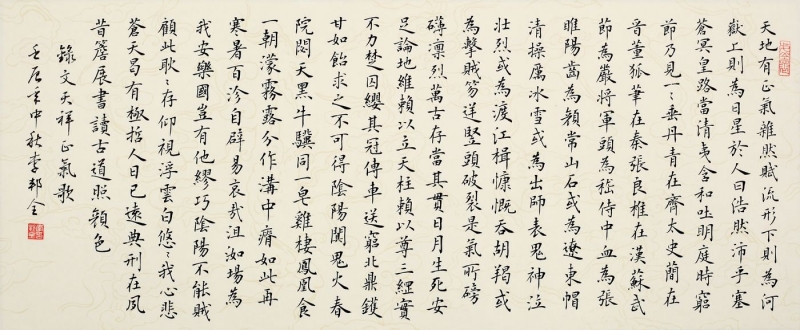 天地有正氣雜然賦流形下則為河
嶽上則為日星於人曰浩然沛乎塞
蒼冥皇路當清夷含和吐明庭時窮
節乃見一々垂丹青在齊太史簡在
晉董狐筆在秦張良椎在漢蘇武
節為嚴將軍頭為嵇侍中血為張
睢陽齒為顏常山舌或為遼東帽
清操厲冰雪或為出師表鬼神泣
壯烈或為渡江楫慷慨吞胡羯或
為擊賊笏逆豎頭破裂是氣所磅
礴凜烈萬古存當其貫日月生死安
足論地維賴以立天柱賴以尊三綱實
不力楚囚纓其冠傳車送窮北鼎鑊
甘如飴求之不可得陰陽闐鬼火春
院閟天黑牛驥同一皂雞棲鳳凰食
一朝濛霧露分作溝中瘠如此再
寒暑百沴自辟易哀哉沮洳場為
我安樂國豈有他繆巧陰陽不能賊
顧此耿々存仰視浮雲白悠々我心悲
蒼天曷有極哲人日已遠典刑在夙
昔簷展書讀古道照顏色
錄文天祥正氣歌
壬辰年中秋李邦全